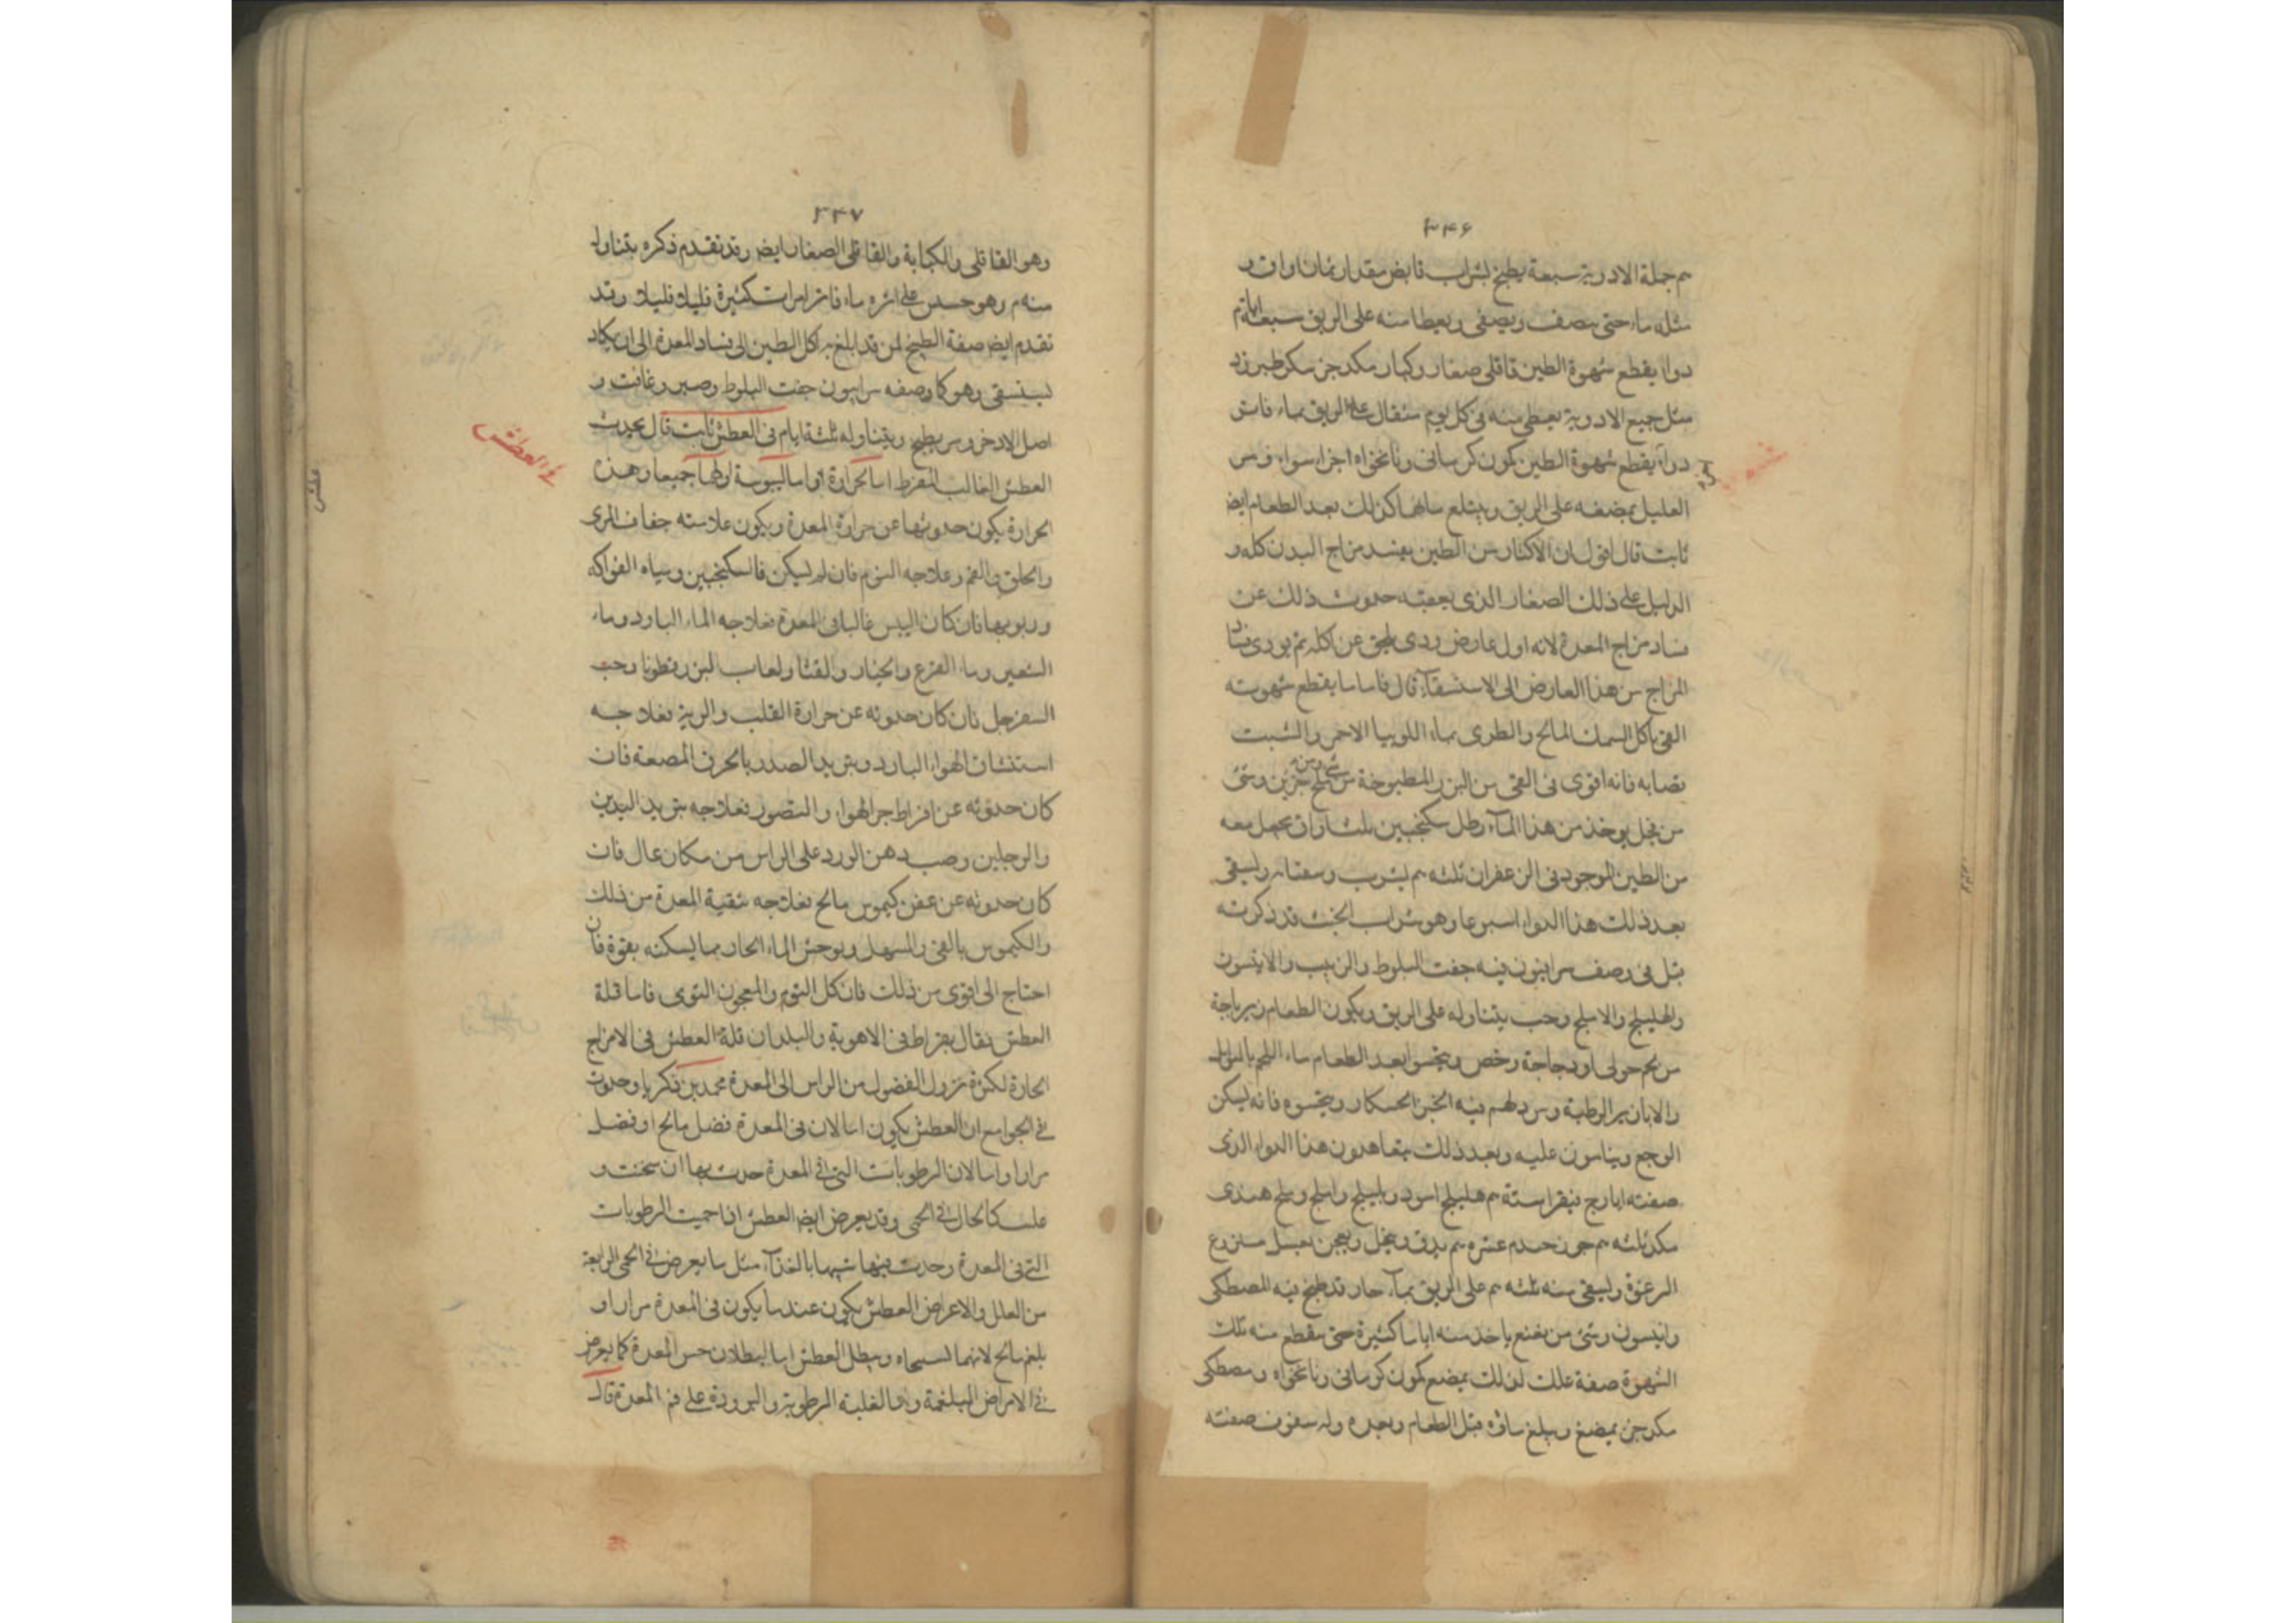 ۳۴۶
من جملة الادوية سبعة يطبخ بشراب قابض مقدار ثمان اواق و
مثله ماء حتى ينصف ويصفى ويعطا منه على الريق سبعة ايام
دواء يقطع شهوة الطين قاقلى صغار وكبار مكد جز سكر طبرزد
مثل جميع الادوية يعطى منه فى كل يوم مثقال على الريق بماء فاتر
دواء يقطع شهوة الطين كمون كرمانى ونانخواه اجزاء سواء ومر
العليل بمضغه على الريق ويبتلع مائهما كذلك بعد الطعام ايض
ثابت قال اقول ان الاكثار من الطين يفسد مزاج البدن كله و
الدليل على ذلك الصفار الذى يعقبه حدوث ذلك عن
فساد مزاج المعدة لانه اول عارض ردى يلحق عن اكله ثم يودى فساد
المزاج من هذا العارض الى الاستسقاء قال فاما ما يقطع شهوته
القى باكل السمك المالح والطرى بماء اللوبيا الاحمر والشبت
نصابه فانه اقوى فى القى من البزر المطبوخة من ملح جزين وشئ
من فجل يوخذ من هذا الماء رطل سكنجبين ثلث اواق يجعل معه
من الطين الموجود فى الزعفران ثلثه م يشرب وسعتار ويسقى
بعد ذلك هذا الدواء اسبوعا وهو شراب الخبث قد ذكرته
قبل فى وصف سرابيون فيه جفت البلوط والزبيب والانيسون
والهليلج والاملج وحب يتناوله على الريق ويكون الطعام زيرباجة
من لحم حولى او دجاجة رخص ويتحسوا بعد الطعام ماء اللحم بالتوابل
والابازير الرطبة ومن دلهم فيه الخبز الخشكار ويتحسوه فانه يسكن
الوجع وينامون عليه وبعد ذلك يتعاهدون هذا الدواء الذى
صفته ايارج فيقرا ستة م هليلج اسود وبليلج واملج وملح هندى
مكد ثلثه م جوز جندم عشره م يدق وينخل ويعجن بعسل منزوع
الرغوة ويسقى منه ثلثه م على الريق بماء حار قد طبخ فيه المصطكى
وانيسون وشئ من نعنع ياخذ منه اياما كثيرة حتى يقطع منه تلك
الشهوة صفة علك لذلك يمضغ كمون كرمانى ونانخواه ومصطكى
مكد جز يمضغ ويبلع ماؤه قبل الطعام وبعده وله سفوف صفته
۳۴۷
وهو القاقلى والكبابة والقاقلى الصغار ايض وقد تقدم ذكره يتناول
منه م وهو حسن على اثره ماء فاتر مرات كثيرة قليلا قليلا وقد
تقدم ايض صفة الطبيخ لمن قد ابلغ به اكل الطين الى فساد المعدة الى ان يكاد
يستسقى وهو كما وصفه سرابيون جفت البلوط وصبر وغافت و
اصل الاذخر ومر يطبخ ويتناوله ثلثة ايام فى العطش ثابت قال يحدث
فى العطش
العطش الغالب المفرط اما لحرارة او اما ليبوسة او لهما جميعا وهذه
الحرارة يكون حدوثها عن حرارة المعدة ويكون علامته جفاف المرى
والحلق والفم وعلاجه النوم فان لم يسكن فالسكنجبين ومياه الفواكه
وربوبها فان كان اليبس غالبا فى المعدة فعلاجه الماء البارد وماء
الشعير وماء القرع والخيار والقثا ولعاب البزرقطونا وحب
السفرجل فان كان حدوثه عن حرارة القلب والرية فعلاجه
استنشاق الهواء البارد وتبريد الصدر بالخرق المصعة فان
كان حدوثه عن افراط حر الهواء والتصور فعلاجه تبريد اليدين
والرجلين وصب دهن الورد على الراس من مكان عال فان
كان حدوثه عن عفن كيموس مالح فعلاجه تنقية المعدة من ذلك
والكيموس بالقى والمسهل وبوحش الماء الحار مما يسكنه بقوة فان
احتاج الى اقوى من ذلك فاكل الثوم والمعجون الثومى فاما قلة
العطش فقال بقراط فى الاهوية والبلدان قلة العطش فى الامزاج
الحارة لكثرة نزول الفضول من الراس الى المعدة محمد بن زكريا وحدوث
فى الجوامع ان العطش يكون اما لان فى المعدة فضل مالح او فضل
مرارا واما لان الرطوبات التى فى المعدة حدث بها ان سخنت و
غلت كالحال فى الحمى وقد يعرض ايض العطش اذا حميت الرطوبات
التى فى المعدة وحدث فيها شبيها بالغذاء مثل ما يعرض فى الحمى الرابعة
من العلل والاعراض العطش يكون عند ما يكون فى المعدة مرار او
بلغم مالح لانهما يسخناه ويبطل العطش اما لبطلان حس المعدة كما يعرض
فى الامراض البلغمة واما لغلبة الرطوبة والبرودة على فم المعدة قال